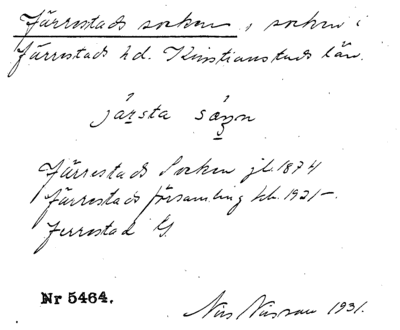 Järrestads socken, socken i
Järrestads hd. Kristianstads län.
jársta
Järrestads Socken jb. 1874
Järrestads församling kb. 1921-.
Jerrestad G
Nr 5464.
Nils 1931.